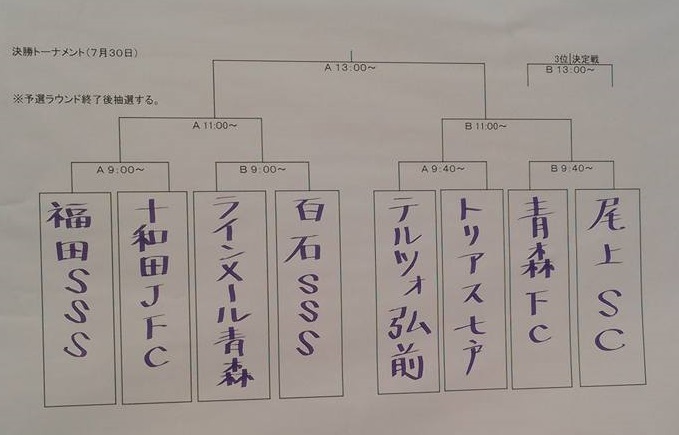 決勝トーナメント(7月30日)
※予選ラウンド終了後抽選する。
3位決定戦
B 13:00～
A 13:00～
A 11:00～
B 11:00～
A 9:00～
B 9:00～
A 9:40～
B 9:40～
福田SSS
十和田JFC
ラインメール青森
百石SSS
テルツォ弘前
トリアス七戸
青森FC
尾上SC